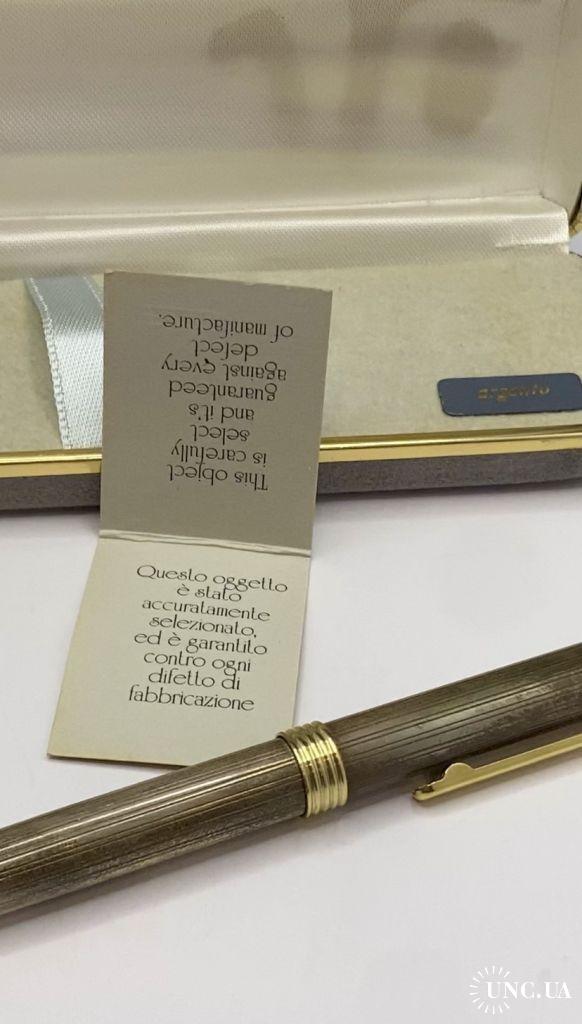 This object
is carefully
select
and it's
guaranteed
against every
defect
of manifacture.
argento
Questo oggetto
è stato
accuratamente
selezionato,
ed è garantito
contro ogni
difetto di
fabbricazione
UNC.UA